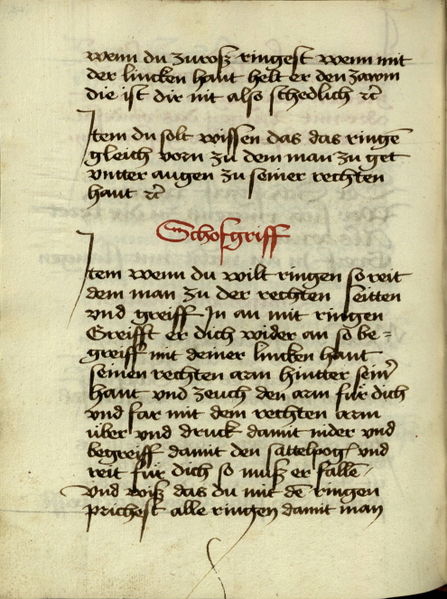 wenn du zuroß ringest wenn mit
der lincken hant helt er den zawm
die ist dir nit also schedlich ꝛc
Item du solt wissen das das ringē
gleich vorn zu dem man zu get
vntter augen zu seiner rechten
hant ꝛc
Schofgriff
Item wenn du wilt ringen so reit
dem man zu der rechten seitten
vnd greiff In an mit ringen
Greifft er dich wider an so be=
greiff mit deiner lincken hant
seinen rechten arm hintter sein̄
hant vnd zeuch den arm für dich
vnd far mit dem rechten arm
über vnd druck damit nider vnd
begreiff damit den sattelpog / vnd
reit für dich so muß er fallē
vnd wiß das du mit dē ringen
prichest alle ringen damit man